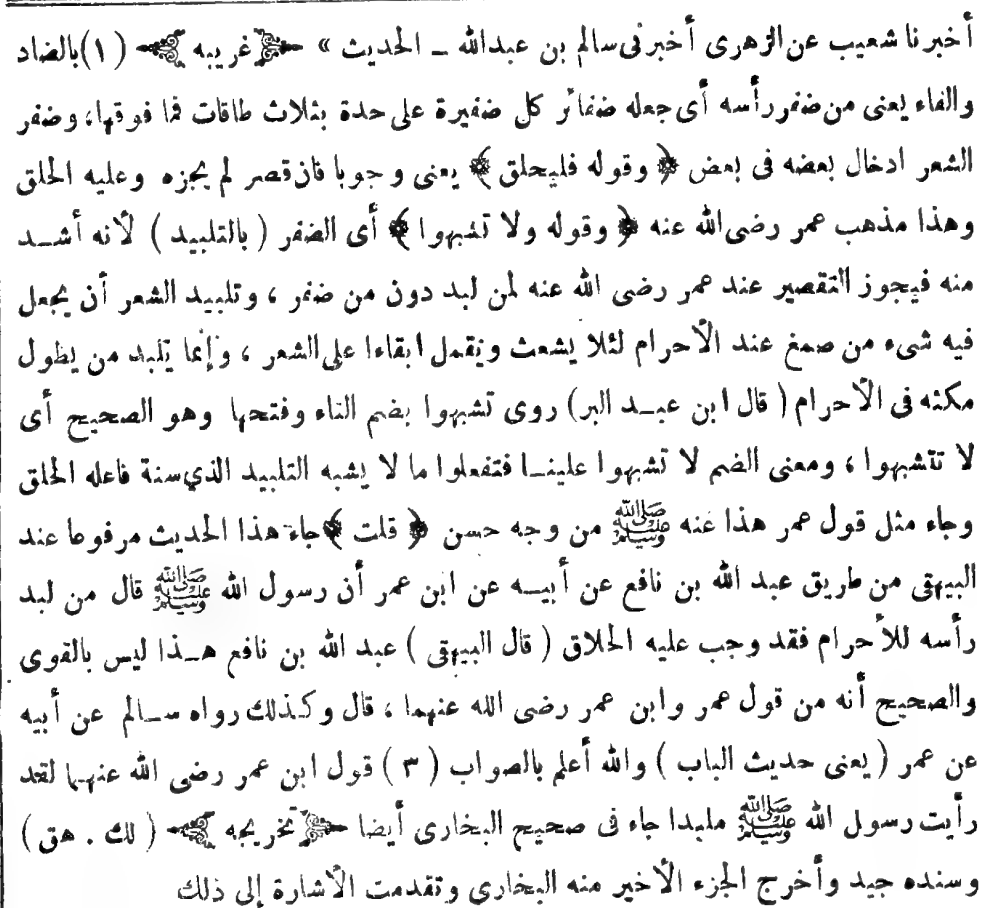 أخبرنا شعيب عن الزهرى أخبرنى سالم بن عبدالله ـ الحديث » ﴿ غريبه ﴾ (١) بالضاد
والفاء يعنى من ضفر رأسه أى جعله ضفائر كل ضفيرة على حدة بثلاث طاقات فما فوقها، وضفر
الشعر ادخال بعضه فى بعض ﴿ وقوله فليحلق ﴾ يعنى وجوبا فان قصر لم يجزه وعليه الحلق
وهذا مذهب عمر رضى الله عنه ﴿ وقوله ولا تشبهوا ﴾ أى الضفر ( بالتلبيد ) لأنه أشـد
منه فيجوز التقصير عند عمر رضى الله عنه لمن لبد دون من ضفر ، وتلبيد الشعر أن يجعل
فيه شىء من صمغ عند الأحرام لئلا يشعث ويقمل ابقاءا على الشعر ، وإنما يلبد من يطول
مكثه فى الأحرام ( قال ابن عبـد البر) روى تشبهوا بضم التاء وفتحها وهو الصحيح أى
لا تتشبهوا ، ومعنى الضم لا تشبهوا علينـا فتفعلوا ما لا يشبه التلبيد الذي سنة فاعله الحلق
وجاء مثل قول عمر هذا عنه ﷺ من وجه حسن ﴿ قلت ﴾ جاء هذا الحديث مرفوعا عند
البيهقى من طريق عبد الله بن نافع عن أبيـه عن ابن عمر أن رسول الله ﷺ قال من لبد
رأسه للأحرام فقد وجب عليه الحلاق ( قال البيهقى ) عبد الله بن نافع هـذا ليس بالقوى
والصحيح أنه من قول عمر وابن عمر رضى الله عنهما ، قال وكذلك رواه سـالم عن أبيه
عن عمر ( يعنى حديث الباب ) والله أعلم بالصواب ( ٣ ) قول ابن عمر رضى الله عنهـما لقد
رأيت رسول الله ﷺ ملبدا جاء فى صحيح البخارى أيضا ﴿ تخريجه ﴾ ( لك . هق )
وسنده جيد وأخرج الجزء الأخير منه البخارى وتقدمت الأشارة إلى ذلك